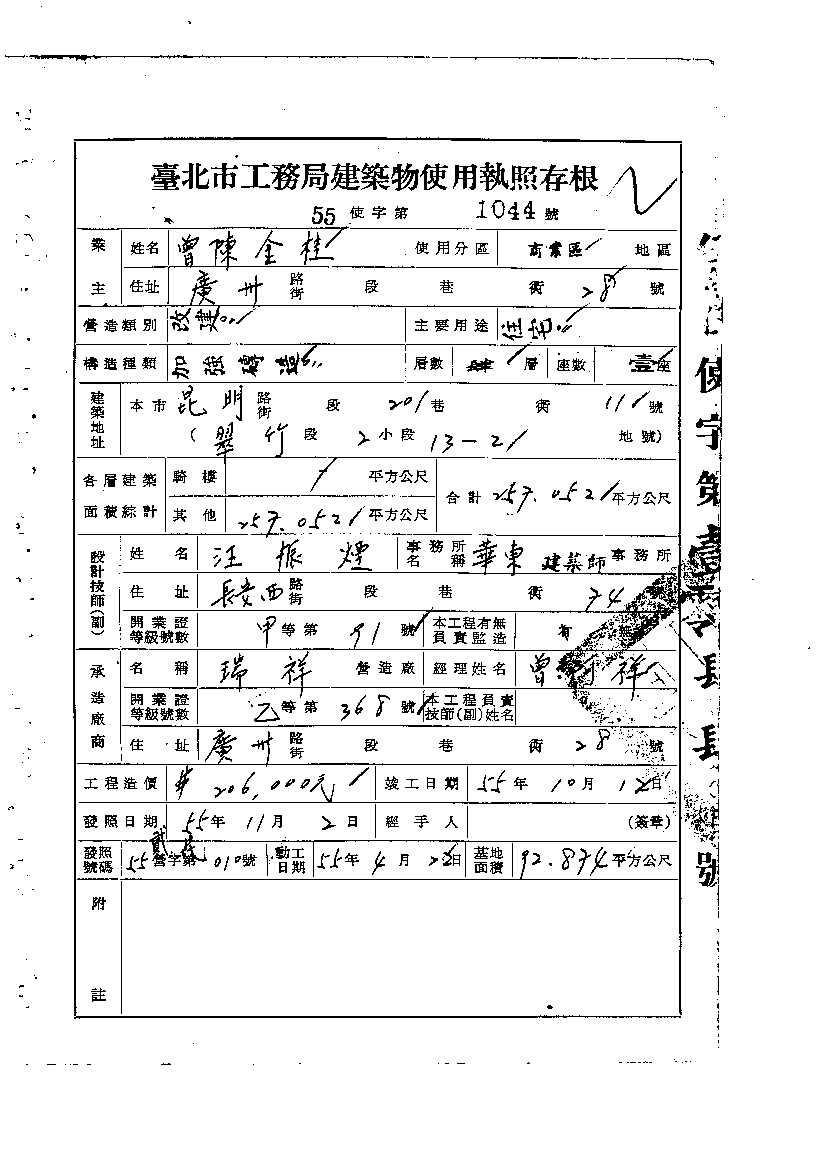 臺北市工務局建築物使用執照存根
55 使字第 1044 號
業主 姓名 曾陳金桂 使用分區 商業區 地區
住址 廣州 路街 段 巷 衖 28 號
營造類別 改建 主要用途 住宅
構造種類 加強磚造 層數 肆 層 座數 壹座
建築地址 本市 昆明 路街 段 201 巷 衖 11 號
(翠竹 段 2 小段 13-21 地號)
各層建築面積綜計 騎樓 / 平方公尺 合計 257.052 平方公尺
其他 257.052 平方公尺
設計技師(副) 姓名 汪振煙 事務所名稱 華東 建築師 事務所
住址 長安西 路街 段 巷 衖 74 號
開業證等級號數 甲等第 91 號 本工程有無負責監造 有 無
承造廠商 名稱 瑞祥 營造廠 經理姓名 曾 祥
開業證等級號數 乙等第 368 號 本工程負責技師(副)姓名
住址 廣州 路街 段 巷 衖 28 號
工程造價 $ 206,000元 竣工日期 55年 10月 12日
發照日期 55年 11月 2日 經手人 (簽章)
發照號碼 55營字第 010號 動工日期 55年 4月 日 基地面積 92.874 平方公尺
附註
使字第壹 號